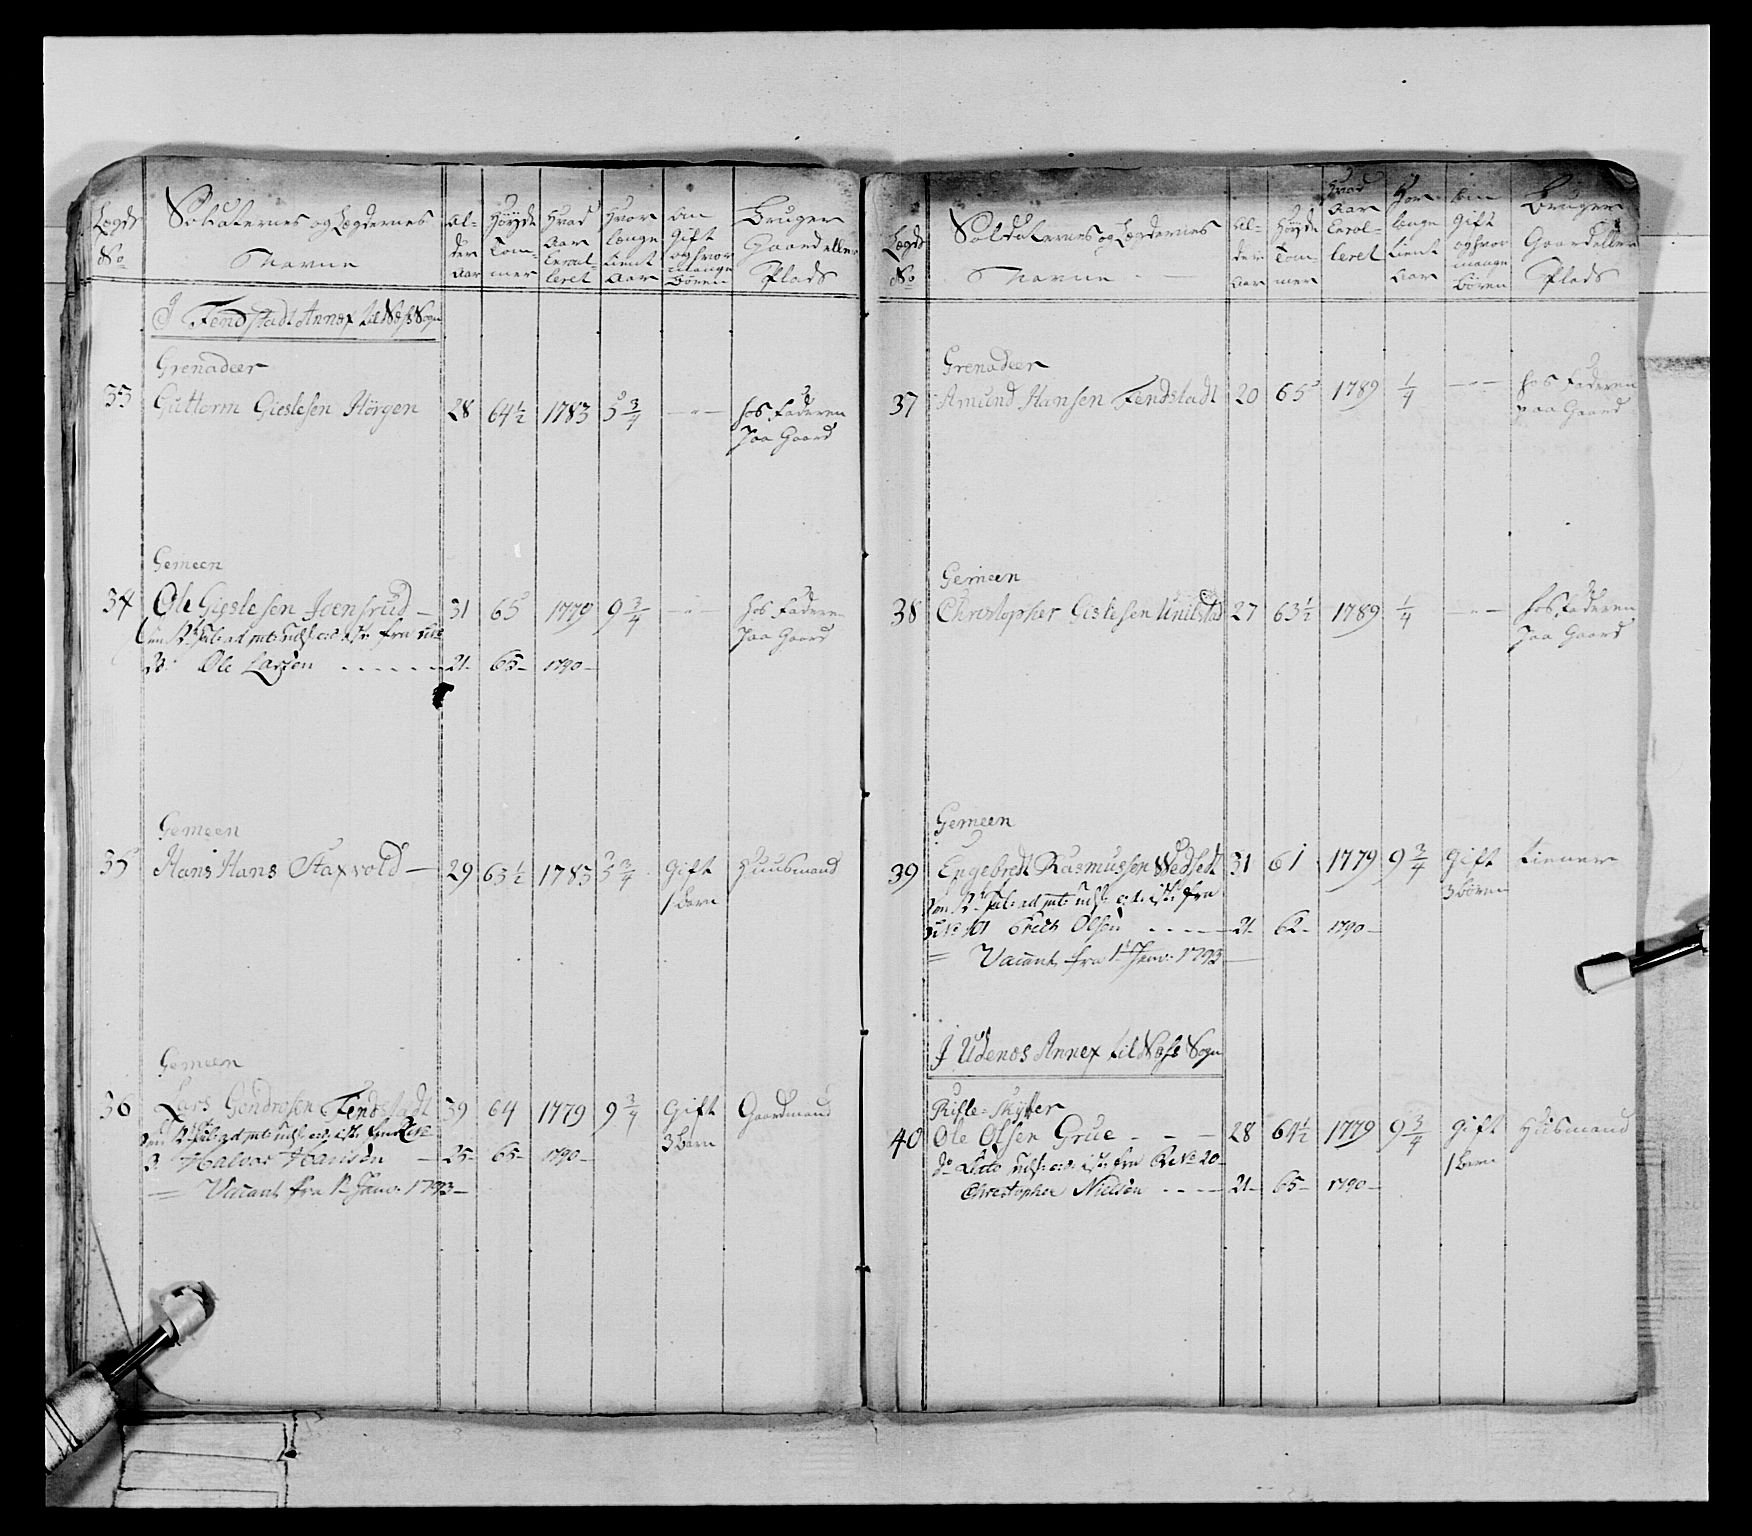 Lægds No
Soldaternes og Lægdernes Navne
Al-der Aar
Høyde Tom-mer
Hvad Aar Enroul-leret
Hvor længe tient Aar
Om Gift og hvor mange Børen
Bruger Gaard eller Plads
I Fendstadt Annex til Næss Sogn
Grenadeer
33 Guttorm Gieslesen Hörgen 28 64½ 1783 5¾ -"- hos Faderen
paa Gaard
Gemeen
34 Ole Gieslesen Jensrud - 31 65 1779 9¾ -"- hos Faderen
paa Gaard
Ole Larsen - - - - - 21- 65- 1790-
Gemeen
35 Hans Hans Staxvold - 29 63½ 1783 5¾ gift Huusmand
1 barn
Gemeen
36 Lars Gendrosen Fendstadt 39 64 1779 9¾ Gift Gaardmand
3 barn
3. Halvor Hansen - 25- 65- 1790-
= Vacant fra 1te Janv: 1793-
Lægds No
Soldaternes og Lægdernes Navne
Al-der Aar
Høyde Tom-mer
Hvad Aar Enrol-leret
Hvor længe tient Aar
Om Gift og hvor mange Børen
Bruger Gaard eller Plads
Grenadeer
37 Amund Hansen Fendstadt 20 65 1789 ¼ -"- hos Faderen
paa Gaard
Gemeen
38 Christopher Gislesen 27 63½ 1789 ¼ -"- hos Faderen
paa Gaard
Gemeen
39 Engebredt Rasmussen Wedsedt 31 61 1779 9¾ gift tiener
3 börn
Erich Olsen - - - - 21- 62- 1790-
= Vacant fra 1te Janv: 1793-
I Udenos Annex til Næss Sogn
Rifle-Skytter
40 Ole Olsen Grue - - - 28 64½ 1779 9¾ gift Husmand
1 barn
Christopher Nielsen - - - - 21- 65- 1790-